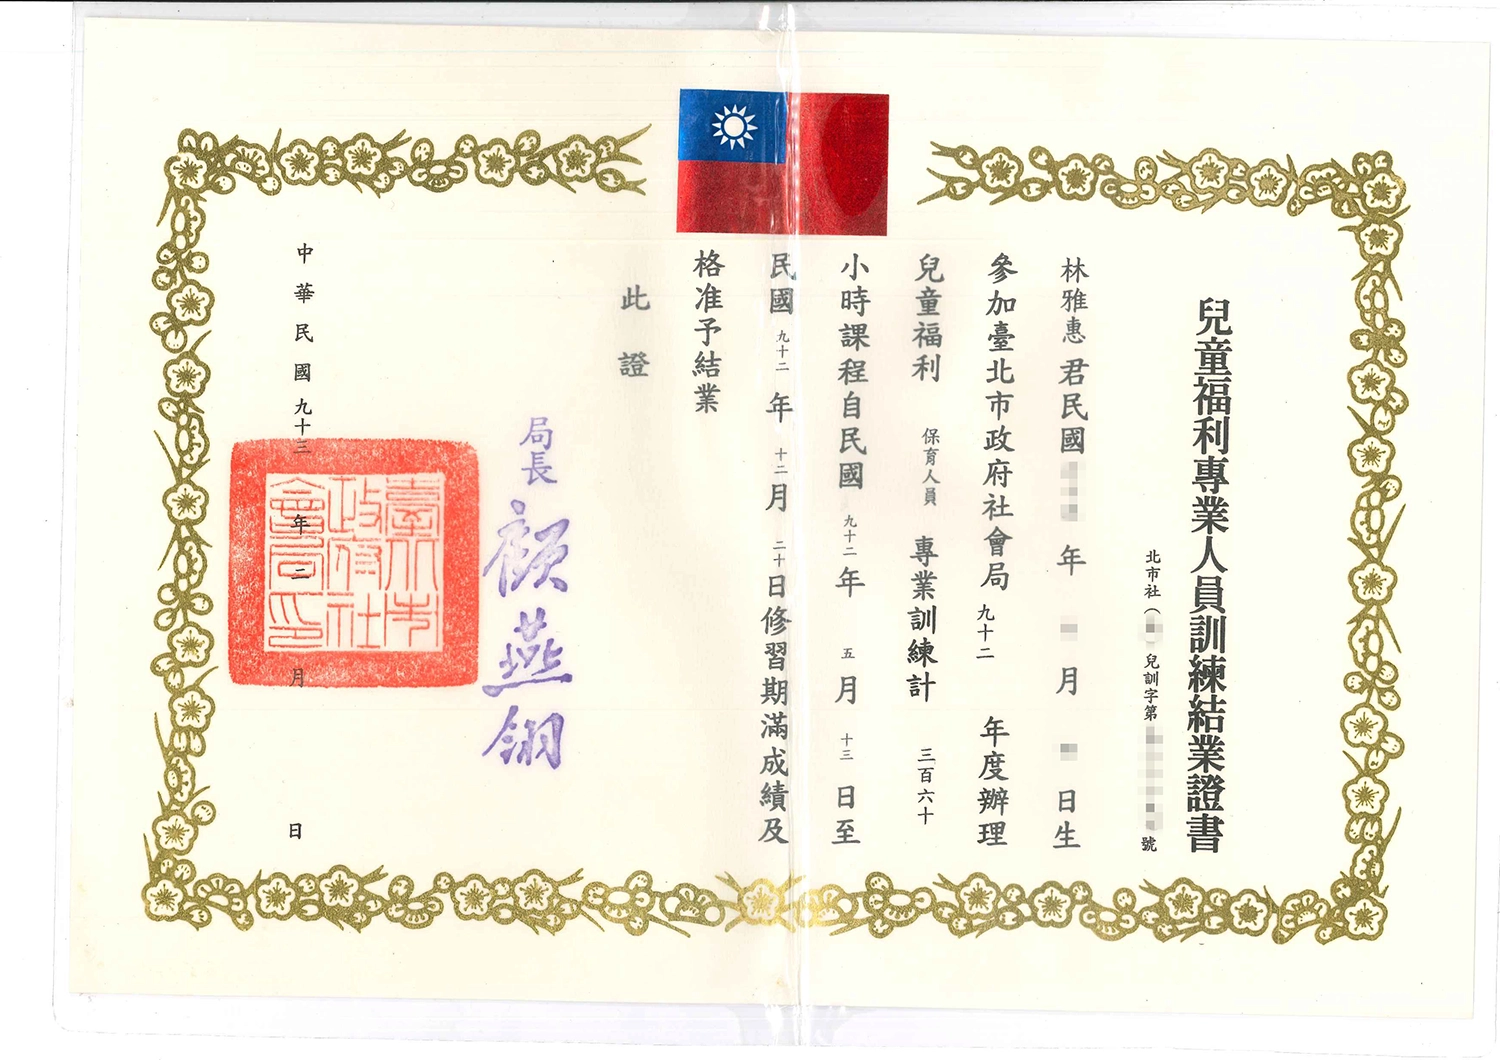 兒童福利專業人員訓練結業證書
北市社( )兒訓字第 號
林雅惠 君民國 年 月 日生
參加臺北市政府社會局 九十二 年度辦理
兒童福利 保育人員 專業訓練計 三百六十
小時課程自民國 九十二 年 五 月 十三 日至
民國 九十二 年 十二 月 二十 日修習期滿成績及
格准予結業
此證
局長 顧燕翎
臺北市政府社會局印
中華民國 九十三 年 二 月 日